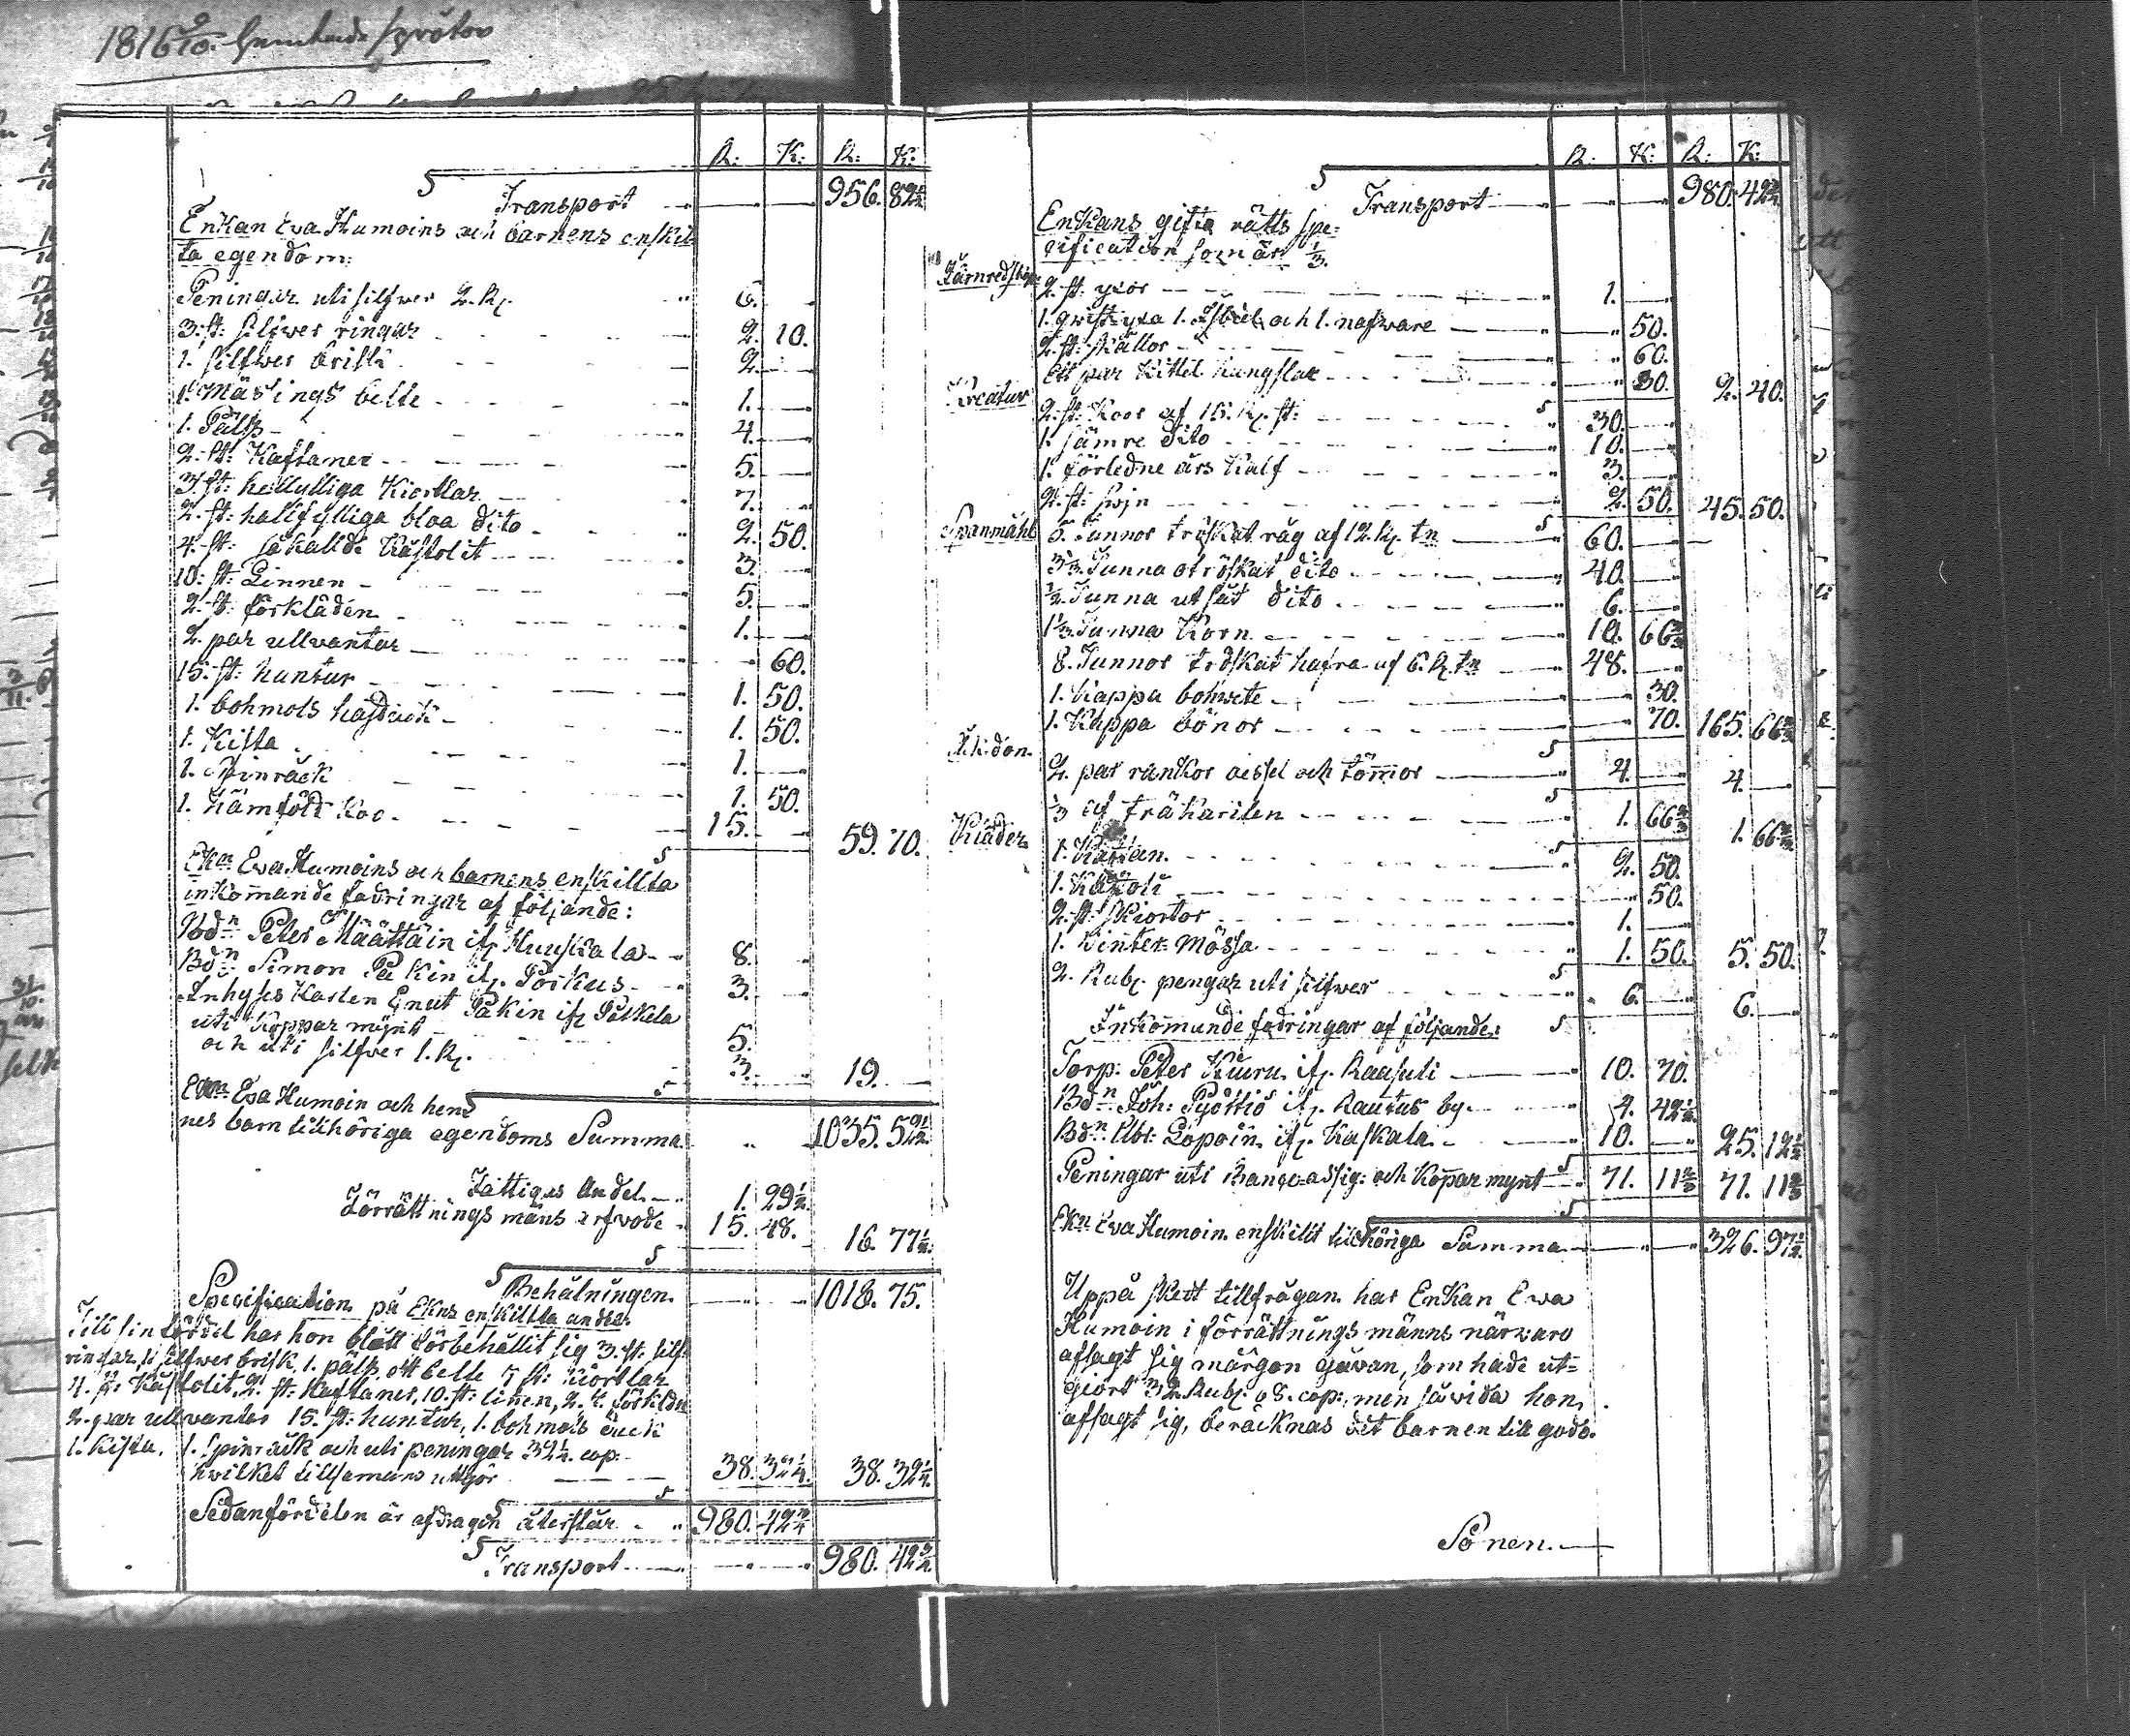 1816 9/10.
R: K: R: K:
Transport 956. 82½
Enkan Eva Humoins och barnens enskil
ta egendom:
Peningar uti silfwer 2. R. 6.
3: st: silfwer ringar 2. 10.
1. silfwer brisk 2.
1. Mäsings belte 1.
1. Päls 4.
2. st: Kaftaner 5.
3. st: helfylliga Kiortlar 7.
2. st: halffylliga bloa dito 2. 50.
4. st: såkallde Kästolit 3.
10: st: Linnen 5.
2. st: förkläden 1.
2. par ullvantar 60.
15. st: huntur 1. 50.
1. bohmols 1. 50.
1. Kista 1.
1. Spinråck 1. 50.
1. hämförd Koo 15. 59. 70.
Ekan Eva Humoins och barnens enskillta
inkommande fodringar af följande:
Bdn Peter Määttäin if. Huuskala 8.
Bdn Simon Pakin if. Porkus 3.
Inhyses Karlen Enut Pakin if. Paskela
uti Koppar mynt 5.
och uti silfwer 1. R. 3. 19.
Ekan Eva Humoin och hen
nes barn tillhöriga egendoms Summa 1035. 52½
Fattigas Andel 1. 29½
Förrättnings mäns arfvode 15. 48. 16. 77½
Behålningen 1018. 75.
Specification på Ekns enskillta andel
Till sin fördel har hon blått förbehållit sig 3. st: silf
ringar, 1 silfwer brisk 1. päls ett belte 7 st: Kiortlar
4. st: Kästolit, 2. st: Kaftaner, 10. st: linen, 2. st. förklde
2. par ullvantar 15. st: huntur, 1. bohmols duck
1. Kista, 1. spinråck och uti peningar 32¼ cop:
hvilket tillsamans utgör 38. 32¼. 38. 32¼.
Sedan fördelen är afdragen återstår 980. 42¾
Transport 980. 42¾
R: K: R: K:
Transport 980. 42¾
Enkans gifta rätts spe=
cification som är ⅓.
Järnredskap
2. st: yxor 1.
1. qwist yxa 1. och 1. nafware 50.
2. st: skällor 60.
Ett par Kittel hangslar 30. 2. 40.
Kreatur
2. st: Koor af 15. R. st: 30.
1. sämre dito 10.
1. förledne års Kalf 3.
2. st: swjn 2. 50. 45. 50.
Spanmåhl
5. Tunnor tröskat råg af 12. R. tn 60.
3⅓. Tunna otröskat dito 40.
½. Tunna utsåt dito 6.
1⅓. Tunna Korn 10. 66⅔
8. Tunnor tröskat hafra af 6. R. tn 48.
1. Kappa bohwete 30.
1. Kappa bönor 70. 165. 66⅔
Åkdon
2. par rankor aissel och tömmor 4. 4.
⅓ af träkarilen 1. 66⅔ 1. 66⅔
Kläder
1. Kaftan 2. 50.
1. 50.
2. st: skiortor 1.
1. Winter Mössa 1. 50. 5. 50.
2. Rub. pengar uti silfwer 6. 6.
Inkommande fodringar af följande:
Torp: Peter Kiuru if. Raasuli 10. 70.
Bdn Joh: Pyöttiö if. Rautus by 4. 42½
Bdn Abr: Lopoin if. Kaskala 10. 25. 12½
Peningar uti Banco assig: och Kopar mynt 71. 11⅔ 71. 11⅔
Ekn Eva Humoin enskillt tillhöriga Summa 326. 97½.
Uppå skedt tillfrågan har Enkan Ewa
Humoin i förrättnings männs närwaro
afsagt sig mårgon gåvan, som hade ut=
giort 32. Rub. 68. cop:, men såvida hon
afsagt sig, beräcknas det barnen till godo.
Sonen.